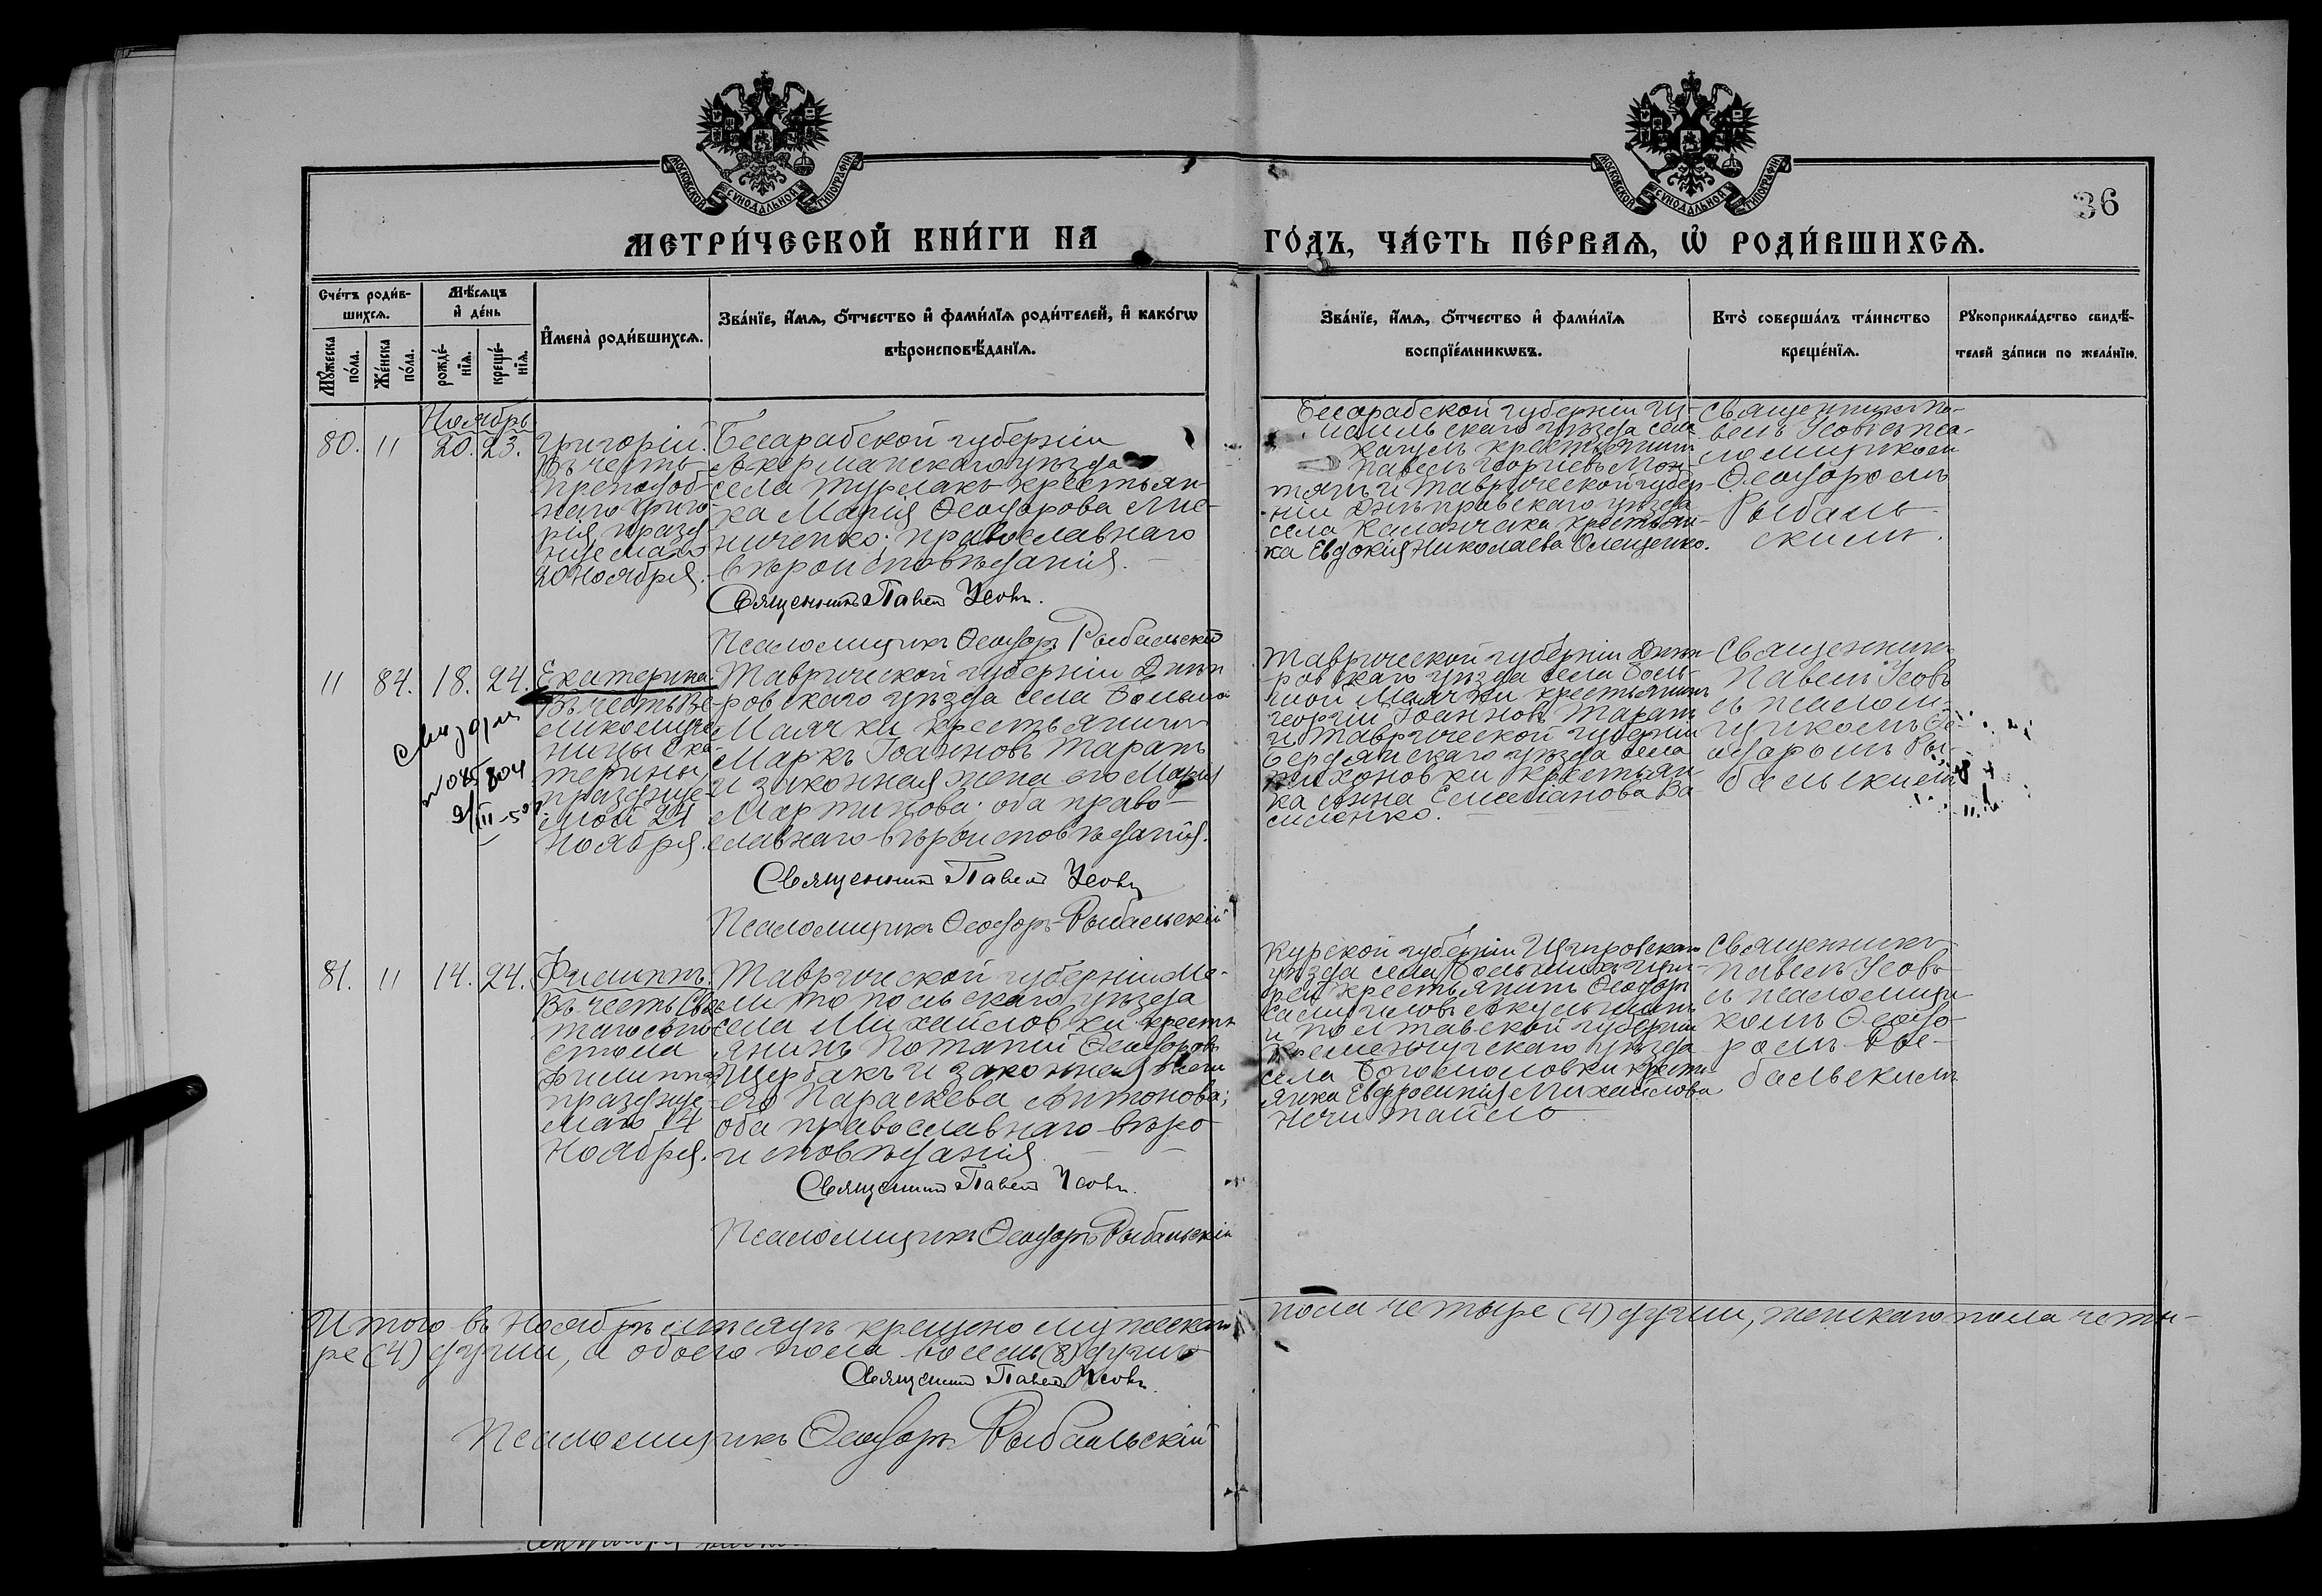 МОСКОВСКОЙ СѴНОДАЛЬНОЙ ТИПОГРАФІИ
МОСКОВСКОЙ СѴНОДАЛЬНОЙ ТИПОГРАФІИ
36
МЕТРИ́ЧЕСКОЙ КНИ́ГИ НА
ГО́ДЪ, ЧА́СТЬ ПЕ́РВАѦ, Ѽ РОДИ́ВШИХСѦ.
Сче́тъ роди́в-
шихсѧ.
Мѣ́сѧцъ
и҆ де́нь
Мꙋ́жеска по́ла.
Же́нска по́ла.
рожде́-
нїѧ.
креще́-
нїѧ.
И҆мена̀ роди́вшихсѧ.
Зва́нїе, и҆́мѧ, ѻ҆́тчество и҆ фами́лїѧ роди́телей, и҆ како́гѡ
вѣроисповѣ́данїѧ.
Зва́нїе, и҆́мѧ, ѻ҆́тчество и҆ фами́лїѧ
воспрїе́мникѡвъ.
Кто̀ соверша́лъ та́инство
креще́нїѧ.
Рꙋкоприкла́дство свидѣ́-
телей за́писи по жела́нїю.
Ноябрь
80. 11 20. 23.
Григорій.
Въ честь
преподоб-
наго Григо-
рія, празд
нуемаго
20 Ноября.
Бесарабской губерніи
Аккерманскаго уѣзда
села Турлакъ крестьян-
ка Марія Ѳеодорова Лис-
ниченко; православнаго
вѣроисповѣданія.
Священникъ Павелъ Усовъ.
Псаломщикъ Ѳеодоръ Рыбальскій
Бесарабской губерніи Из-
маильскаго уѣзда села
крестьянинъ
Павелъ Георгіевъ Мон-
тянъ и Таврической губер-
ніи Днѣпровскаго уѣзда
села Каланчака крестьян-
ка Евдокія Николаева Олещенко.
Священникъ Па-
велъ Усовъ съ пса-
ломщикомъ
Ѳеодоромъ
Рыбаль-
скимъ.
11 84. 18. 24.
Свид. дан
2/III-50
Екатерина.
Въ честь Ве-
ликомуче-
ницы Ека-
терины,
праздну-
емой 24
Ноября.
Таврической губерніи Днѣп
ровскаго уѣзда села Большой
Маячки крестьянинъ
Маркъ Іоанновъ Таранъ
и законная жена его Марія
Мартинова; оба право-
славнаго вѣроисповѣданія.
Священникъ Павелъ Усовъ
Псаломщикъ Ѳеодоръ Рыбальскій
Таврической губерніи Днѣп
ровскаго уѣзда села Боль-
шой Маячки крестьянинъ
Георгій Іоанновъ Таранъ
и Таврической губерніи
Бердянскаго уѣзда села
крестьян
ка Анна Емеліанова Ва
силенко.
Священникъ
Павелъ Усовъ
съ псалом-
щикомъ Ѳе-
одоромъ Ры-
бальскимъ
81. 11 14. 24.
Филиппъ.
Въ честь Свя
таго Апо-
стола
Филиппа,
праздуе-
маго 14
Ноября.
Таврической губерніи Ме-
литопольскаго уѣзда
села Михайловки кресть
янинъ Потапій Ѳеодоровъ
Щербакъ и законная жена
его Параскева Антонова;
оба православнаго вѣро-
исповѣданія
Священникъ Павелъ Усовъ.
Псаломщикъ Ѳеодоръ Рыбальскій
Курской губерніи Щигровскаго
уѣзда села Большихъ
крестьянинъ Ѳеодоръ
Самуиловъ Акульшинъ
и Полтавской губерніи
Кременчугскаго уѣзда
села Богомоловки кресть
янка Евфросинія Михайлова
Нечитайло
Священникъ
Павелъ Усовъ
съ псаломщи
комъ Ѳеодо-
ромъ Ры-
бальскимъ
Итого въ Ноябрѣ мѣсяцѣ крещено мужескаго пола четыре (4) души, женскаго пола четы-
ре (4) души, а обоего пола восемь (8) душъ
Священникъ Павелъ Усовъ.
Псаломщикъ Ѳеодоръ Рыбальскій